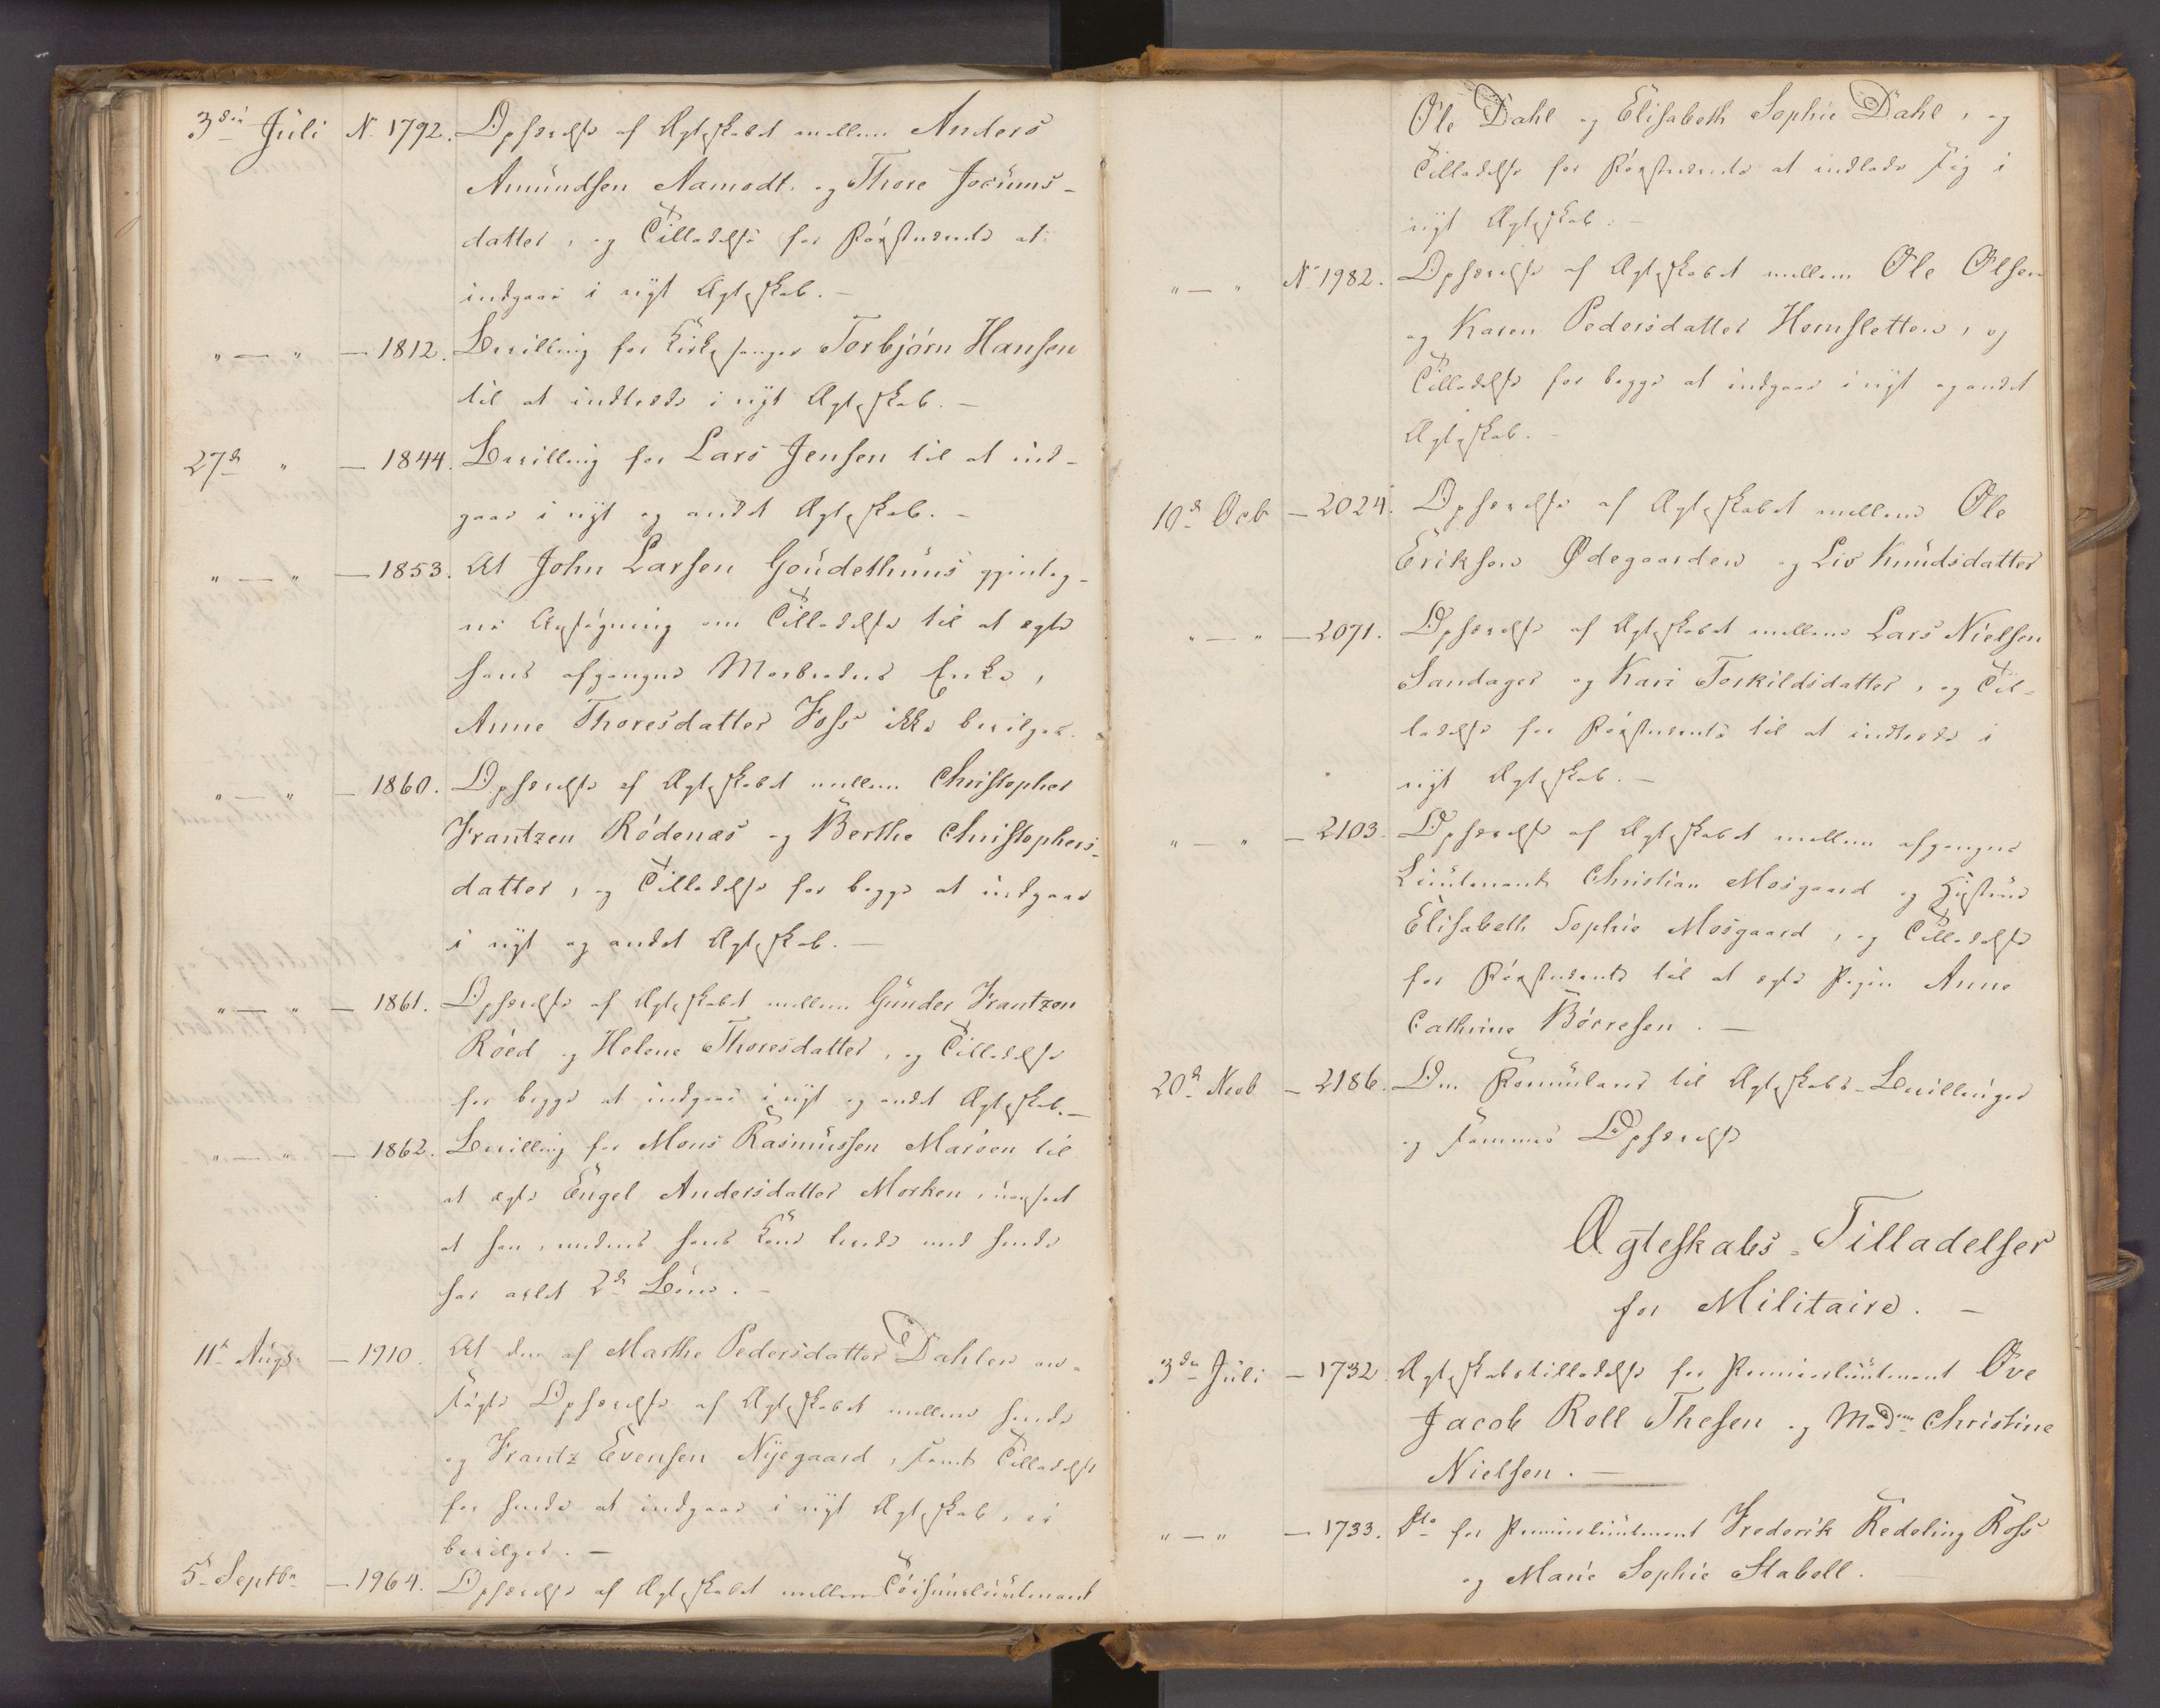 3die Juli N. 1792. Ophævelse af Ægteskabet mellem Anders
Amundsen Aamodt og Thore Jocums-
datter, og Tilladelse for Førstnævnte at
indgaae i nyt Ægteskab. -
" — " — 1812. Bevilling for Kirkesanger Torbjørn Hansen
til at indtræde i nyt Ægteskab. -
27de " — 1844. Bevilling for Lars Jensen til at ind-
gaae i nyt og andet Ægteskab. -
" — " — 1853. At John Larsen Goudethuus gjentag-
ne Ansøgning om Tilladelse til at ægte
hans afgangne Morbroders Enke,
Anne Thoresdatter Foss ikke bevilges.
" — " — 1860. Ophævelse af Ægteskabet mellem Christopher
Frantzen Rødenæs og Berthe Christophers-
datter, og Tilladelse for begge at indgaae
i nyt og andet Ægteskab. —
" — " — 1861. Ophævelse af Ægteskabet mellem Gunder Frantzen
Røed og Helene Thoresdatter, og Tilladelse
for begge at indgaae i nyt og andet Ægteskab. —
" — " — 1862. Bevilling for Mons Rasmussen Marøen til
at ægte Engel Andersdatter Morken, uanseet
at han, medens hans Kone levede med hende
har avlet 2de Børn. -
11te Augs. — 1910. At den af Marthe Pedersdatter Dahlen an-
søgte Ophævelse af Ægteskabet mellem hende
og Frantz Evensen Nyegaard, samt Tilladelse
for hende at indgaae i nyt Ægteskab, ei
bevilges. —
5te Septbr — 1964. Ophævelse af Ægteskabet mellem Toisnuslieutenant
Ole Dahl og Elisabeth Sophie Dahl, og
Tilladelse for Førstnævnte at indlade sig i
nyt Ægteskab. -
" — " No 1982. Ophævelse af Ægteskabet mellem Ole Olsen
og Karen Pedersdatter Hemsletten, og
Tilladelse for begge at indgaae i nyt og andet
Ægteskab. -
10de Octb — 2024. Ophævelse af Ægteskabet mellem Ole
Eriksen Ødegaarden og Liv Knudsdatter
" — " — 2071. Ophævelse af Ægteskabet mellem Lars Nielsen
Sandager og Kari Torkildsdatter, og Til-
ladelse for Førstnævnte til at indtræde i
nyt Ægteskab. —
" — " — 2103. Ophævelse af Ægteskabet mellem afgangne
Lieutenant Christian Mosgaard og Hustrue
Elisabeth Sophie Mosgaard, og Tilladelse
for Førstnævnte til at ægte Pigen Anne
Cathrine Børresen. —
20de Novb — 2186. Om Formularer til Ægteskabs-Bevillinger
og sammes Ophævelse
Ægteskabs-Tilladelser
for Militaire. —
3die Juli — 1732 Ægteskabstilladelse for Premierlieutenant Ove
Jacob Roll Thesen og Madm Christine
Nielsen. —
" — " — 1733. Dto for Premierlieutenant Frederik Redeling Ross
og Marie Sophie Stabell.